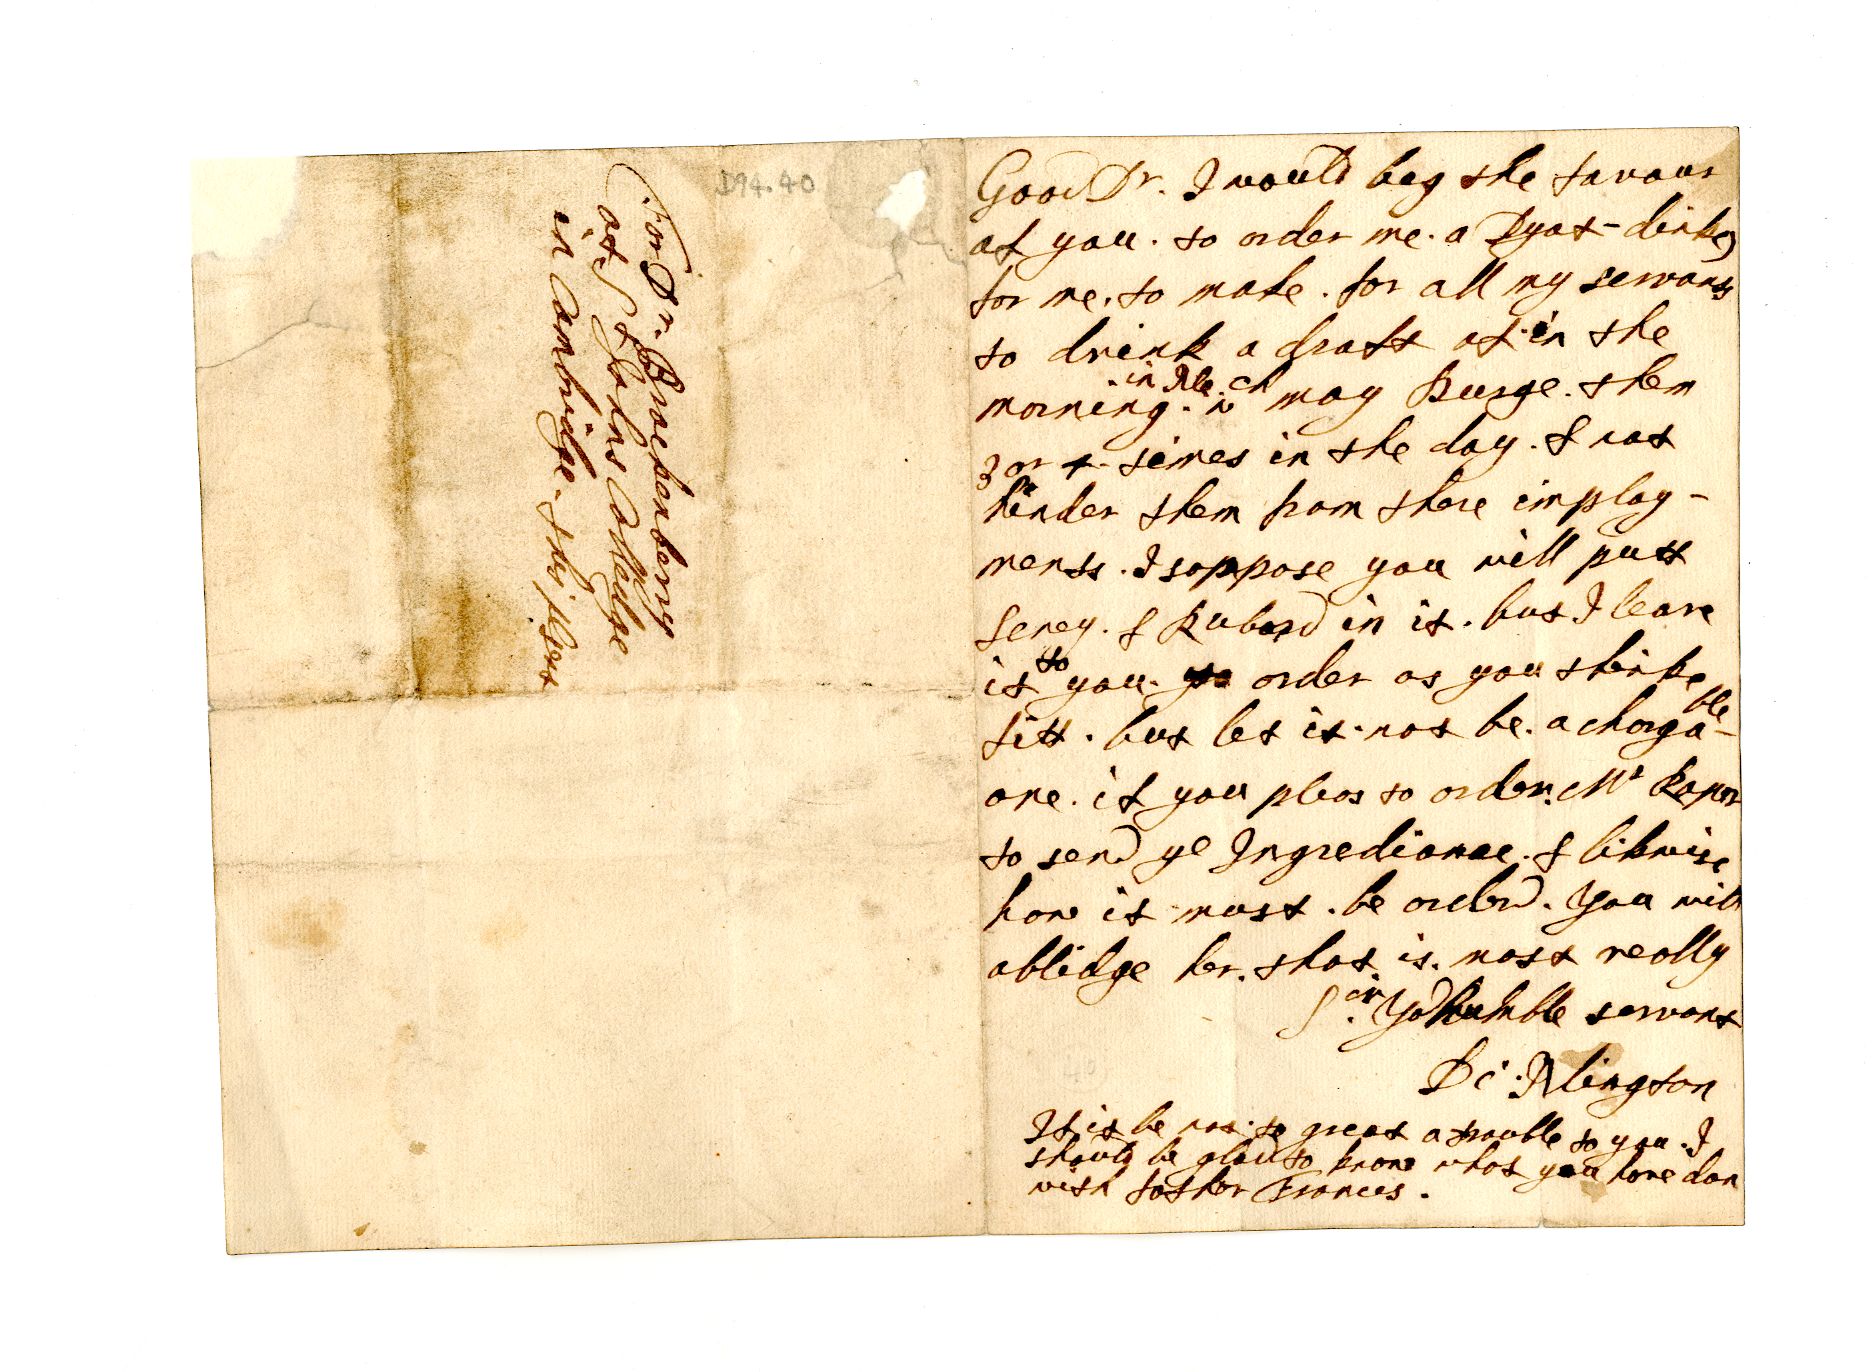 For Dr. Brockenberry
att St Johns Colledge
in Cambridge. this present
D94.40
Good Dr. I would beg the favour
of you. to order me. a Dyat-drinke
for me. to make. for all my servants
to drink a draft of in the
morning. in Ale. wch may Purge. them
3 or 4 times in the day. & not
hinder them from there imploy-
ments. I soppose you will putt
Seney. & Rubard in it. but I leave
it to you. order as you thinke
fitt. but let it. not be. a chargable
one. if you pleas to order. Mr Raper
to send ye Ingrediance. & likewise
how it must. be orderd. you will
oblidge her. that. is. most really
Sir. Yor humble servant
Di. Alington
If it be not. to great a trouble to you. I
should be glad to know what you have don
with father Frances.